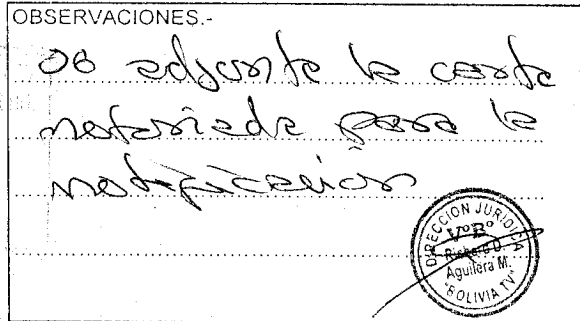 OBSERVACIONES.-
Se adjunta la carta
notariada para la
notificación
DIRECCION JURIDICA
VºBº
Richard D.
Aguilera M.
"BOLIVIA TV"